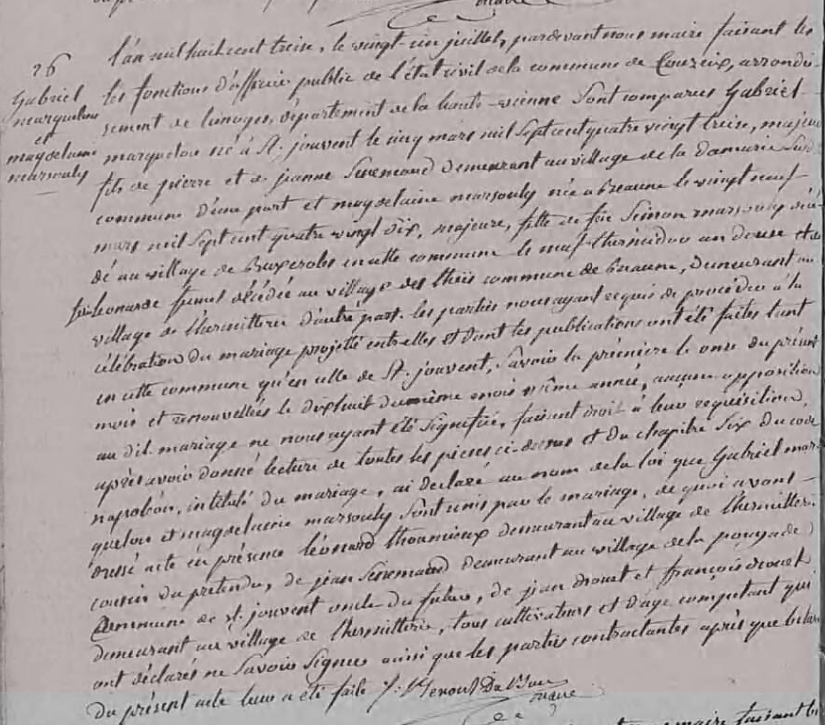 maire
26
Gabriel
marquelou
et
magdelaine
marsouly
l'an mil huit cent treise, le vingt-un juillet, pardevant nous maire faisant les
les fonctions d'officier public de l'état civil de la commune de Couzeix, arrondis-
sement de limoges, département de la haute-vienne Sont comparus Gabriel
marquelou né à St. jouvent le cinq mars mil Sept cent quatre vingt treise, majeur
fils de pierre et de jeanne Senemaud demeurant au village de la
commune d'une part et magdelaine marsouly née a Beaune le vingt neuf
mars mil Sept cent quatre vingt dix, majeure, fille de feu Simon marsouly décé-
dé au village de Buxerolas en cette commune le neuf thermidor an douse et de
feu Leonarde funel décédée au village des commune de Beaune, demeurant au
village de l'hermitterie d'autre part. les parties nous ayant requis de procéder à la
célébration du mariage projetté entr'elles et dont les publications ont été faites tant
en cette commune qu'en celle de St. jouvent, Savoir la première le onse du présent
mois et renouvellées le dixhuit du même mois même année, aucune opposition
au dit mariage ne nous ayant été Signifiée, faisant droit à leur requisition,
après avoir donné lecture de toutes les pieces ci-dessus et du chapitre Six du code
napoléon, intitulé du mariage, ai declaré au nom de la loi que Gabriel mar-
quelou et magdelaine marsouly Sont unis par le mariage, de quoi avons
dressé acte en présence léonard thoumieux demeurant au village de l'hermitterie
cousin du pretendu, de jean Senemaud demeurant au village de la pouyade
Commune de St. jouvent oncle du futur, de jean drouet et françois drouet
demeurant au village de l'hermitterie, tous cultivateurs et d'age compétant qui
ont déclarés ne Savoir Signer ainsi que les parties contractantes après que lecture
du présent acte leur a été faite
maire
maire faisant les